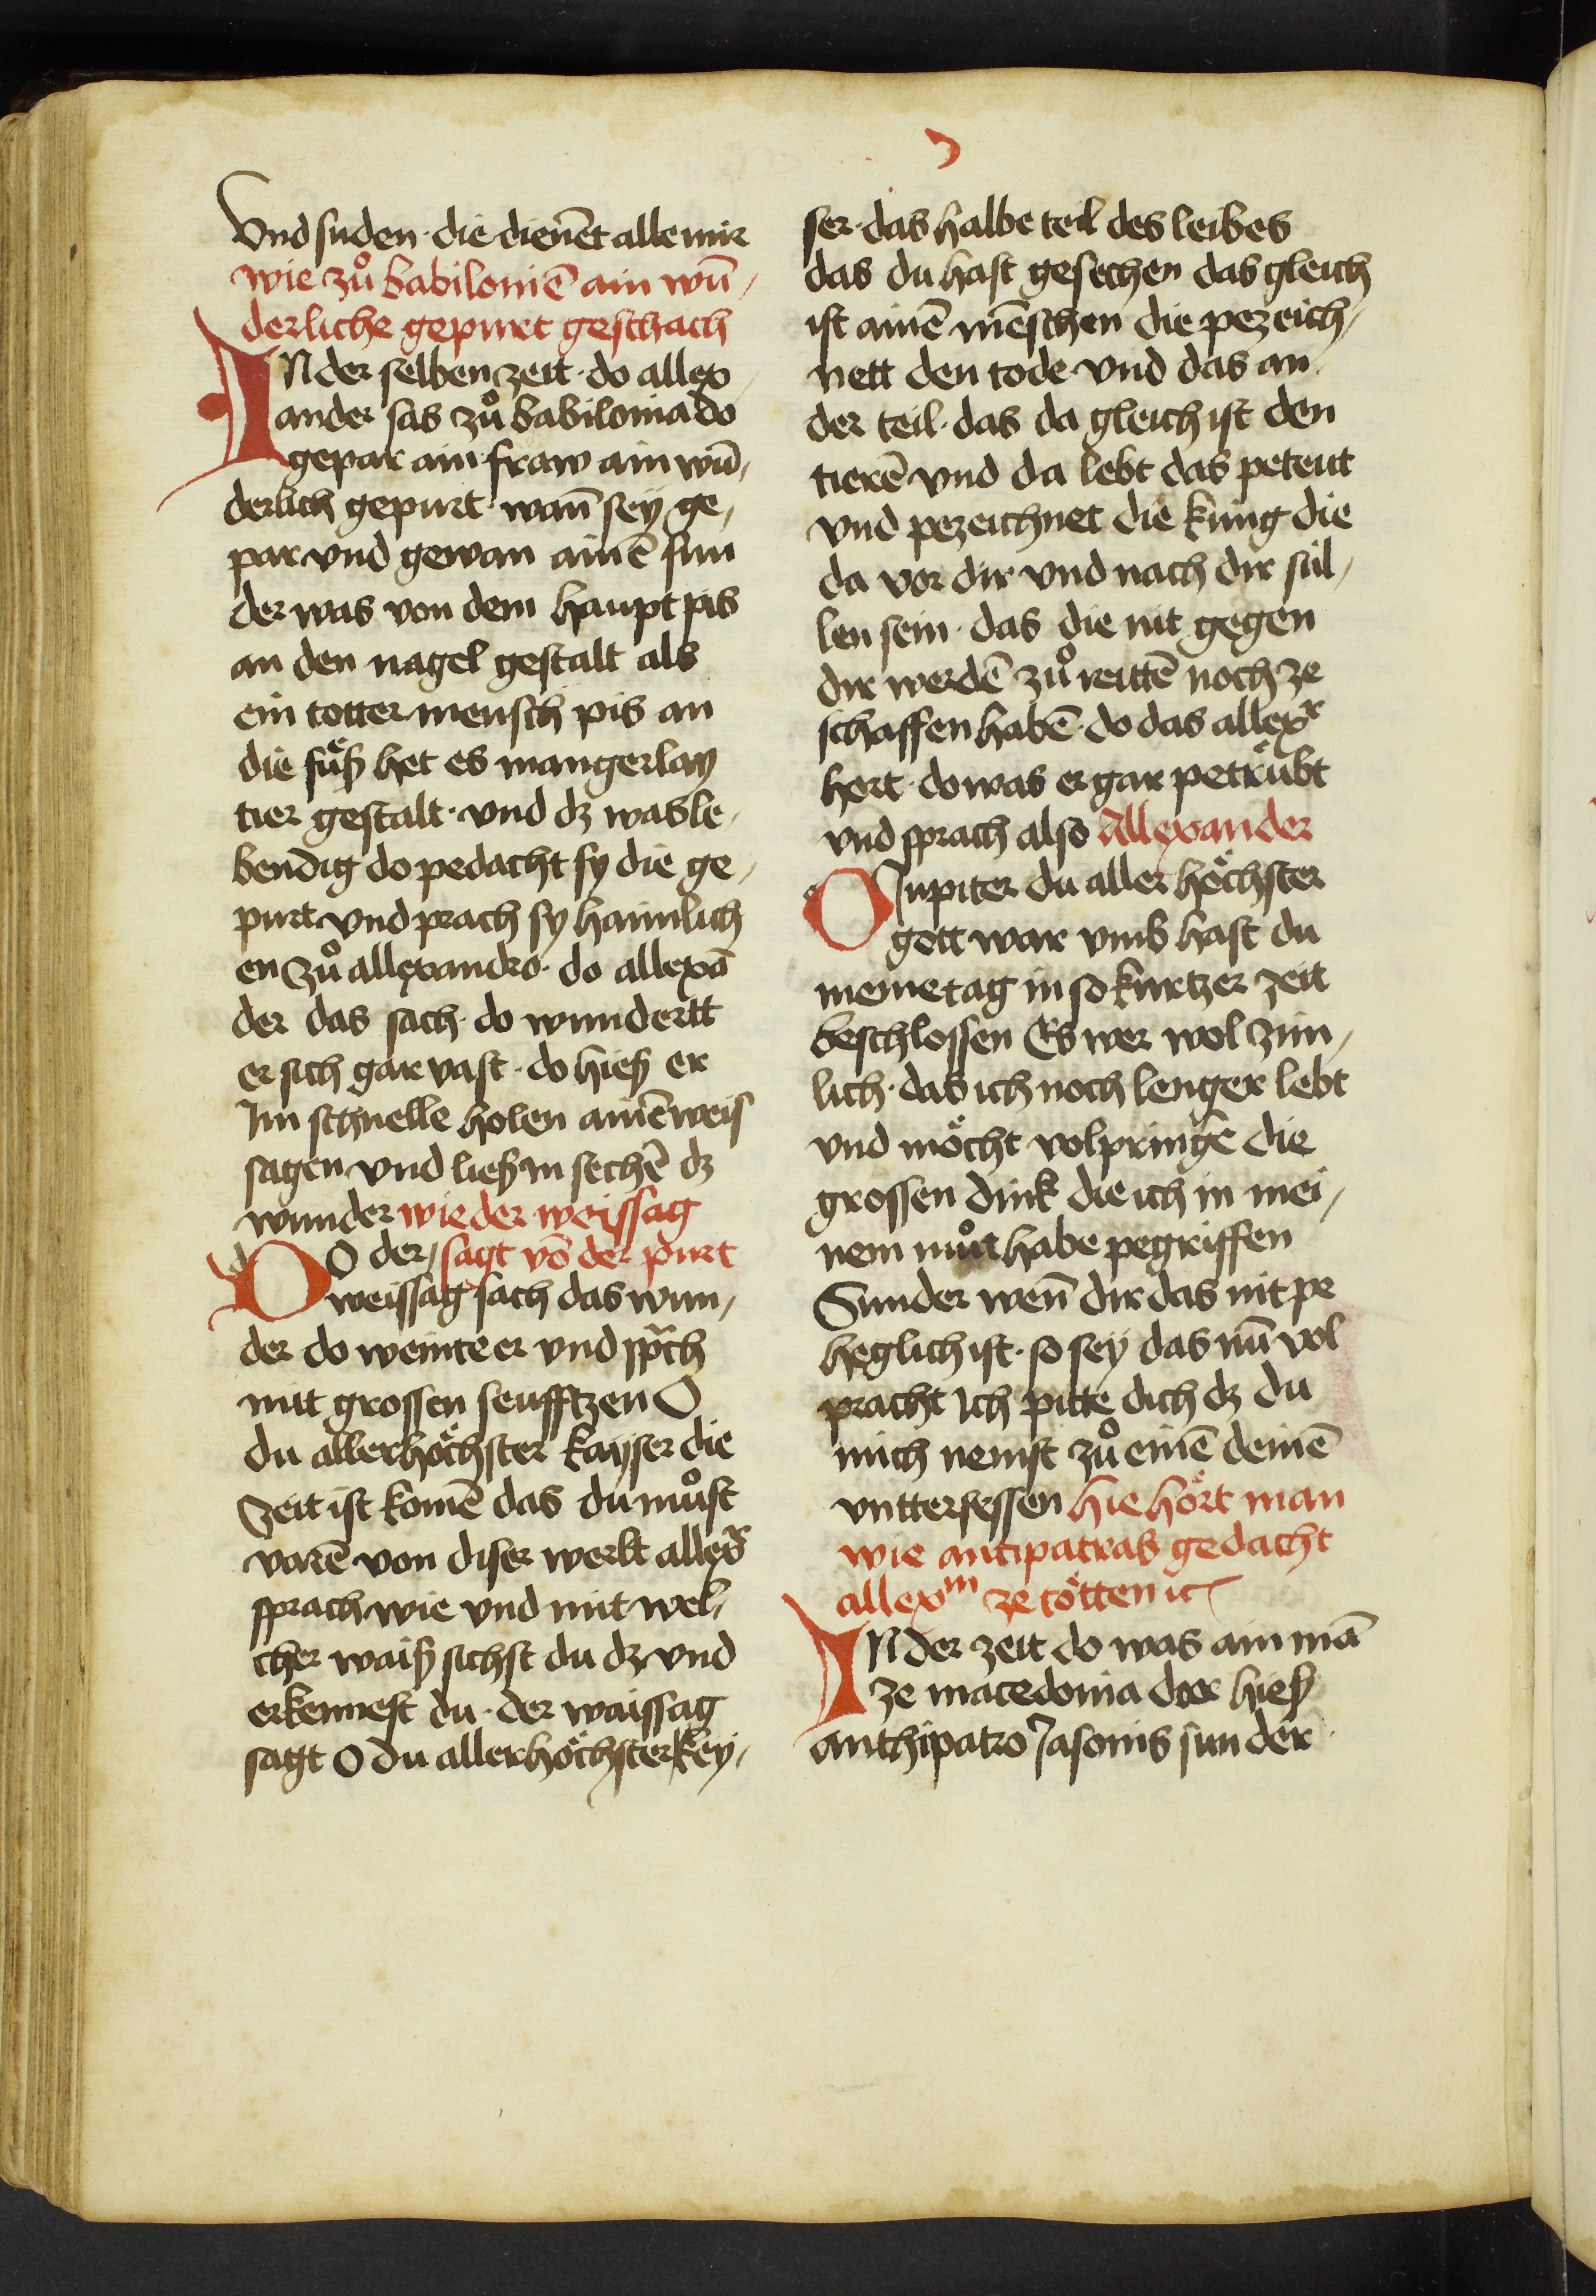 Vnd suden · die dienēt alle mir
wie zuͦ babiloniē ain wū-
derliche gepurt geschach
IN der selben zeit · do allex-
ander sas zuͦ babilonia do
gepar ain fraw ain wū-
derlich gepurt · wan̄ sey ge-
par vnd gewan ainē sun
der was von dem haupt pis
an den nagel gestalt als
ein totter mensch pis an
die fuͤß het es mangerlay
tier gestalt · vnd dz was le-
bendig do pedacht sy die ge-
purt vnd prach sy haimlich
en zuͦ allexandro · do allexā
der das sach · do wundertt
er sich gar vast · do hieß er
Im schnelle holen ainē weis
sagen vnd ließ in sechē dz
wunder wie der weissag
DO der / sagt vō der purt
weissag sach das wun-
der do weinte er vnd sprach
mit grossen seufftzen O
du allerhoͤchster kayser die
Zeit ist komē das du muͦst
varē von diser werlt allexr
sprach wie vnd mit wel-
cher waiß sichst du dz vnd
erkennest du · der waissag
sagt O du allerhoͤchster key-
ser · das halbe teil des leibes
das du hast gesechen das gleich
ist ainē mēschen die pezeich-
nett den tode vnd das an
der teil · das da gleich ist den
tierē vnd da lebt das peteut
vnd pezeichnet die kung die
da vor dir vnd nach dir sül-
len sein · das die nit gegen
dir werdē zuͦ reittē noch ze
schaffen habē · do das allexr
hort · do was er gar petruͤbt
vnd sprach also Allexander
O Jupiter du aller hoͤchster
gott war vmb hast du
meine tag in so kurtzer zeit
beschlossen Es wer wol zim-
lich · das ich noch lenger lebt
vnd moͤcht volpringē die
grossen dink die ich in mei-
nem muͦt habe pegriffen
Sunder wen̄ dir das nit pe
heglich ist · so sey das nū vol
pracht Ich pitte dich dz du
mich nemst zuͦ einē deinē
vnttersessen hie hoͤrt man
wie antipatras gedacht
allexm ze toͤtten ic
IN der zeit do was ain mā
ze macedonia der hieß
anthipatro Jasonis sun der